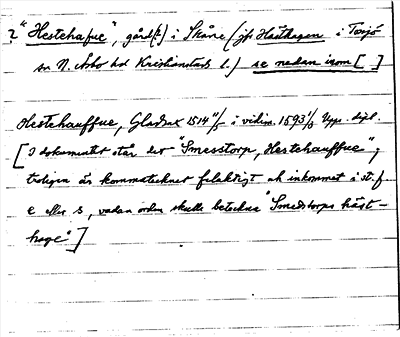 ? "Hestehafue", gård(?) i Skåne (jfr Hästhagen i Tosjö
sn N. Åsbo hd Kristianstads l.) se nedan inom [ ]
Hestehauffue, Gladsax 1514 11/5 i vidim. 1593 1/8 Upps. dipl.
[I dokumentet står det "Smesstorp, Hestehauffue";
troligen är kommatecknet felaktigt och inkommet i st. f.
e eller s, vadan orden skulle beteckna "Smedstorps häst-
hage"]